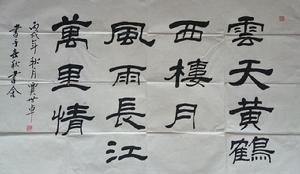 雲天黄鶴
西樓月
風雨長江
萬里情
丙戌年秋月賈世卓
書于